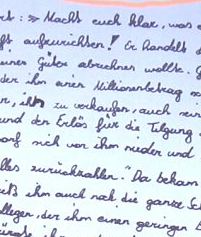 rt: » Macht euch klar, was
ft aufzurichten! Er handelt
einer Güte abrechnen wollte.
der ihm einen Millionenbetrag
n, ihn zu verkaufen, auch
und den Erlös für die Tilgung
arf sich vor ihm nieder und
lles zurückzahlen." Da bekam
ieß ihm auch noch die ganze
llegen, der ihm einen geringen